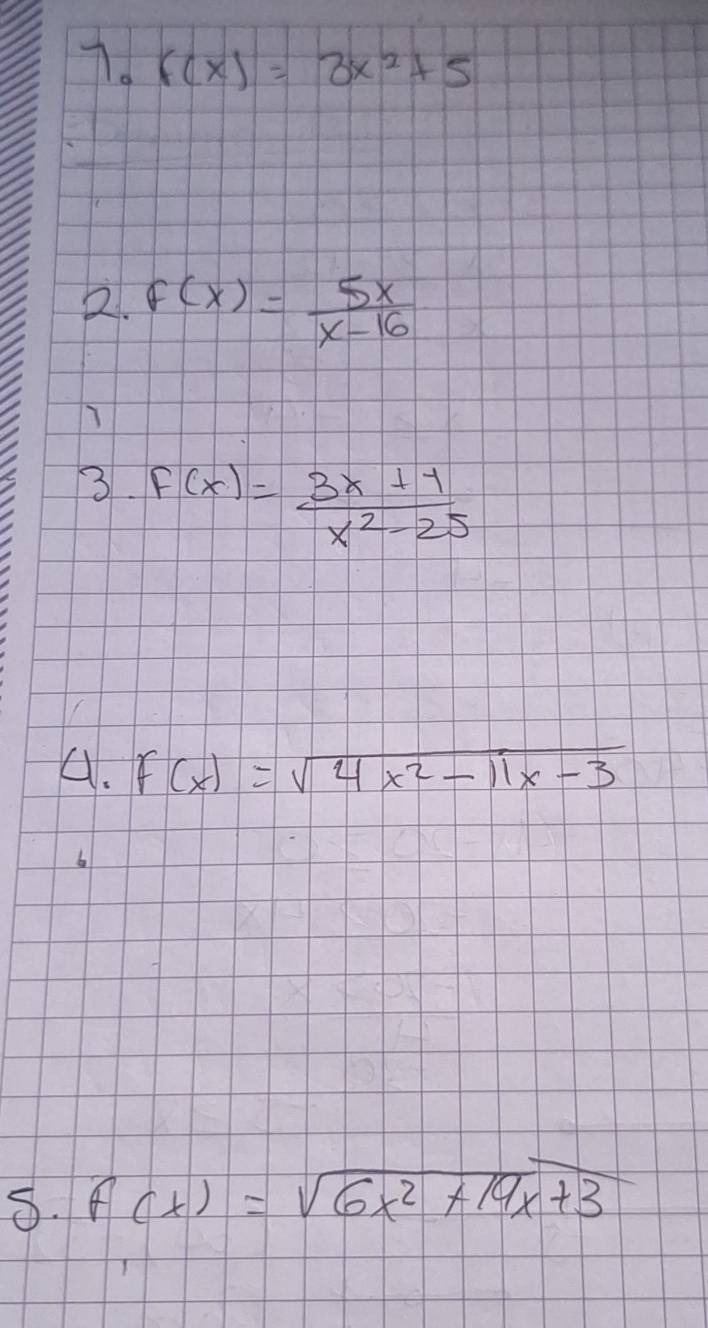 1. f(x) = 3x² + 5
2. f(x) = 5x / x - 16
3. f(x) = 3x + 1 / x² - 25
4. f(x) = √4x² - 11x - 3
5. f(x) = √6x² + 19x + 3